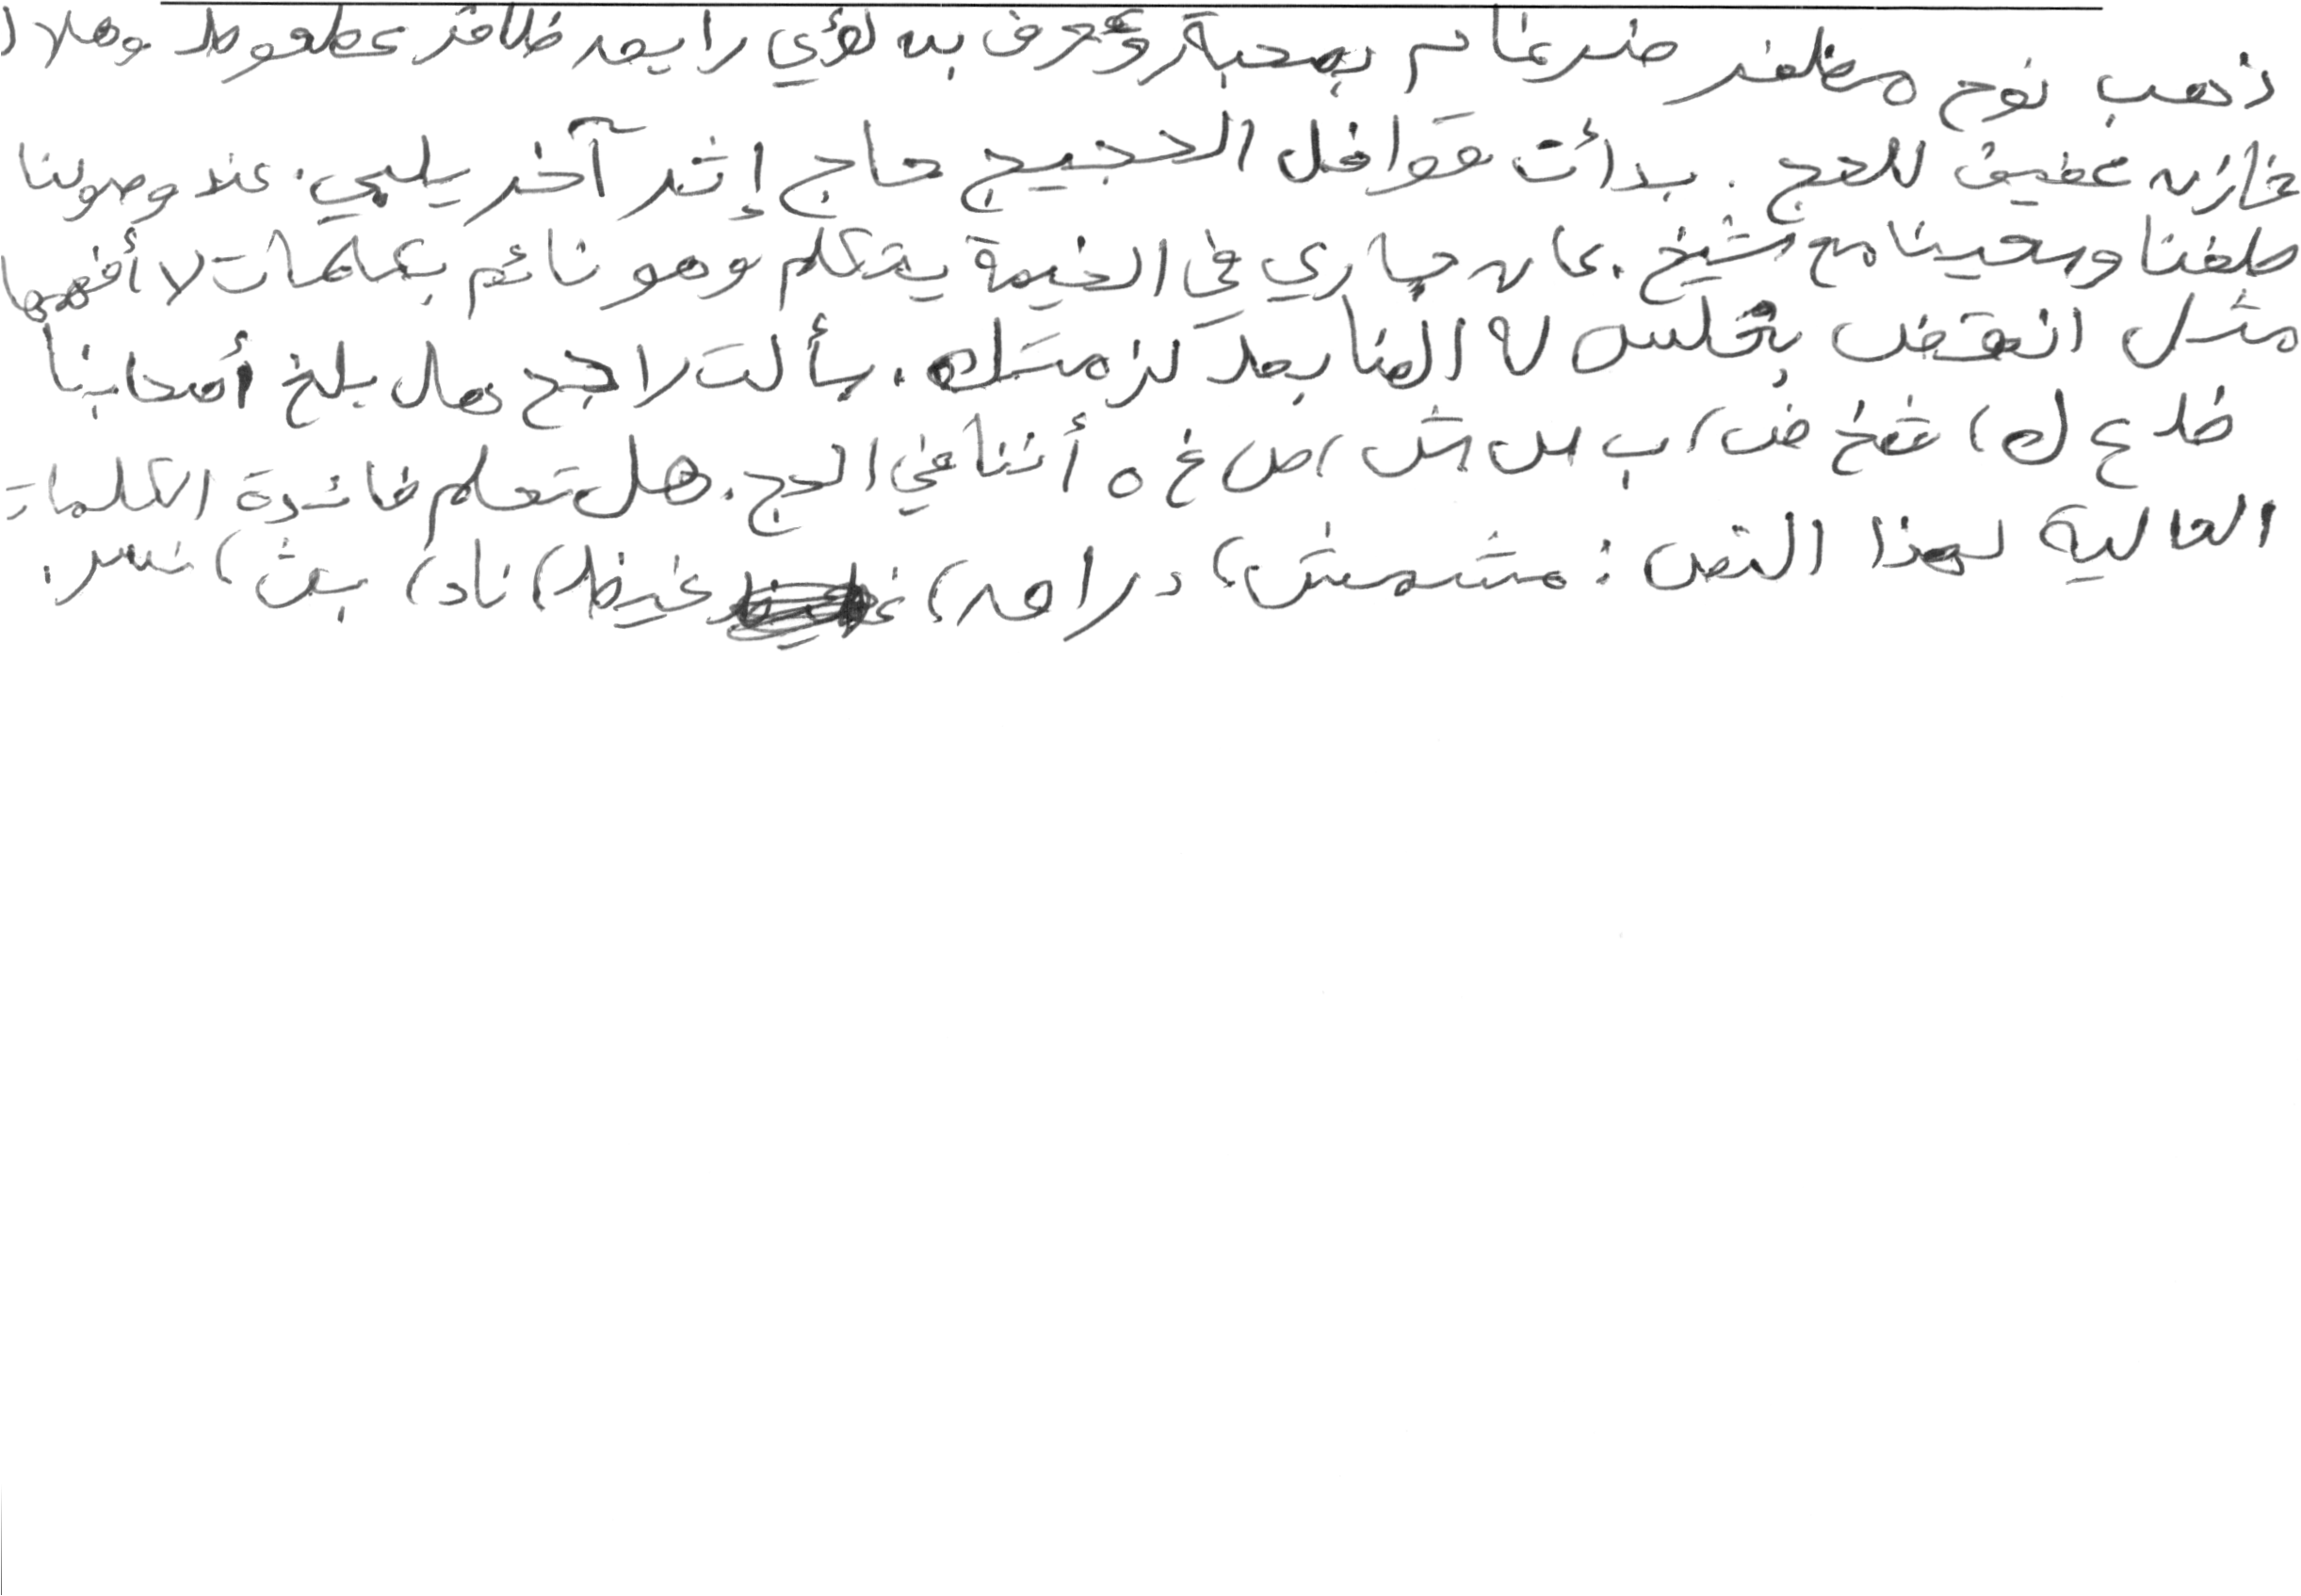 ذهب نوح مظفر ضرغام بصحبة رؤوف بن لؤي رايق ظافر عطعوط وهلال
خازن عفيف للحج. بدأت قوافل الحجيج حاج إثر آخر يلبي. عند وصولنا
طفنا وسعينا مع شيخ. كان جاري في الخيمة يتكلم وهو نائم بكلمات لا أفهمها
مثل انقض بخلس لا الضابط لزمتك. سألت راجح هل بلغ أصحابنا
ظ ع ك، ض، ب س ش، ص غ ه أننا في الحج. هل تعلم فائدة الكلمات
التالية لهذا النص: مشمش، دراق، غيظ، ناد، بث، نسر.